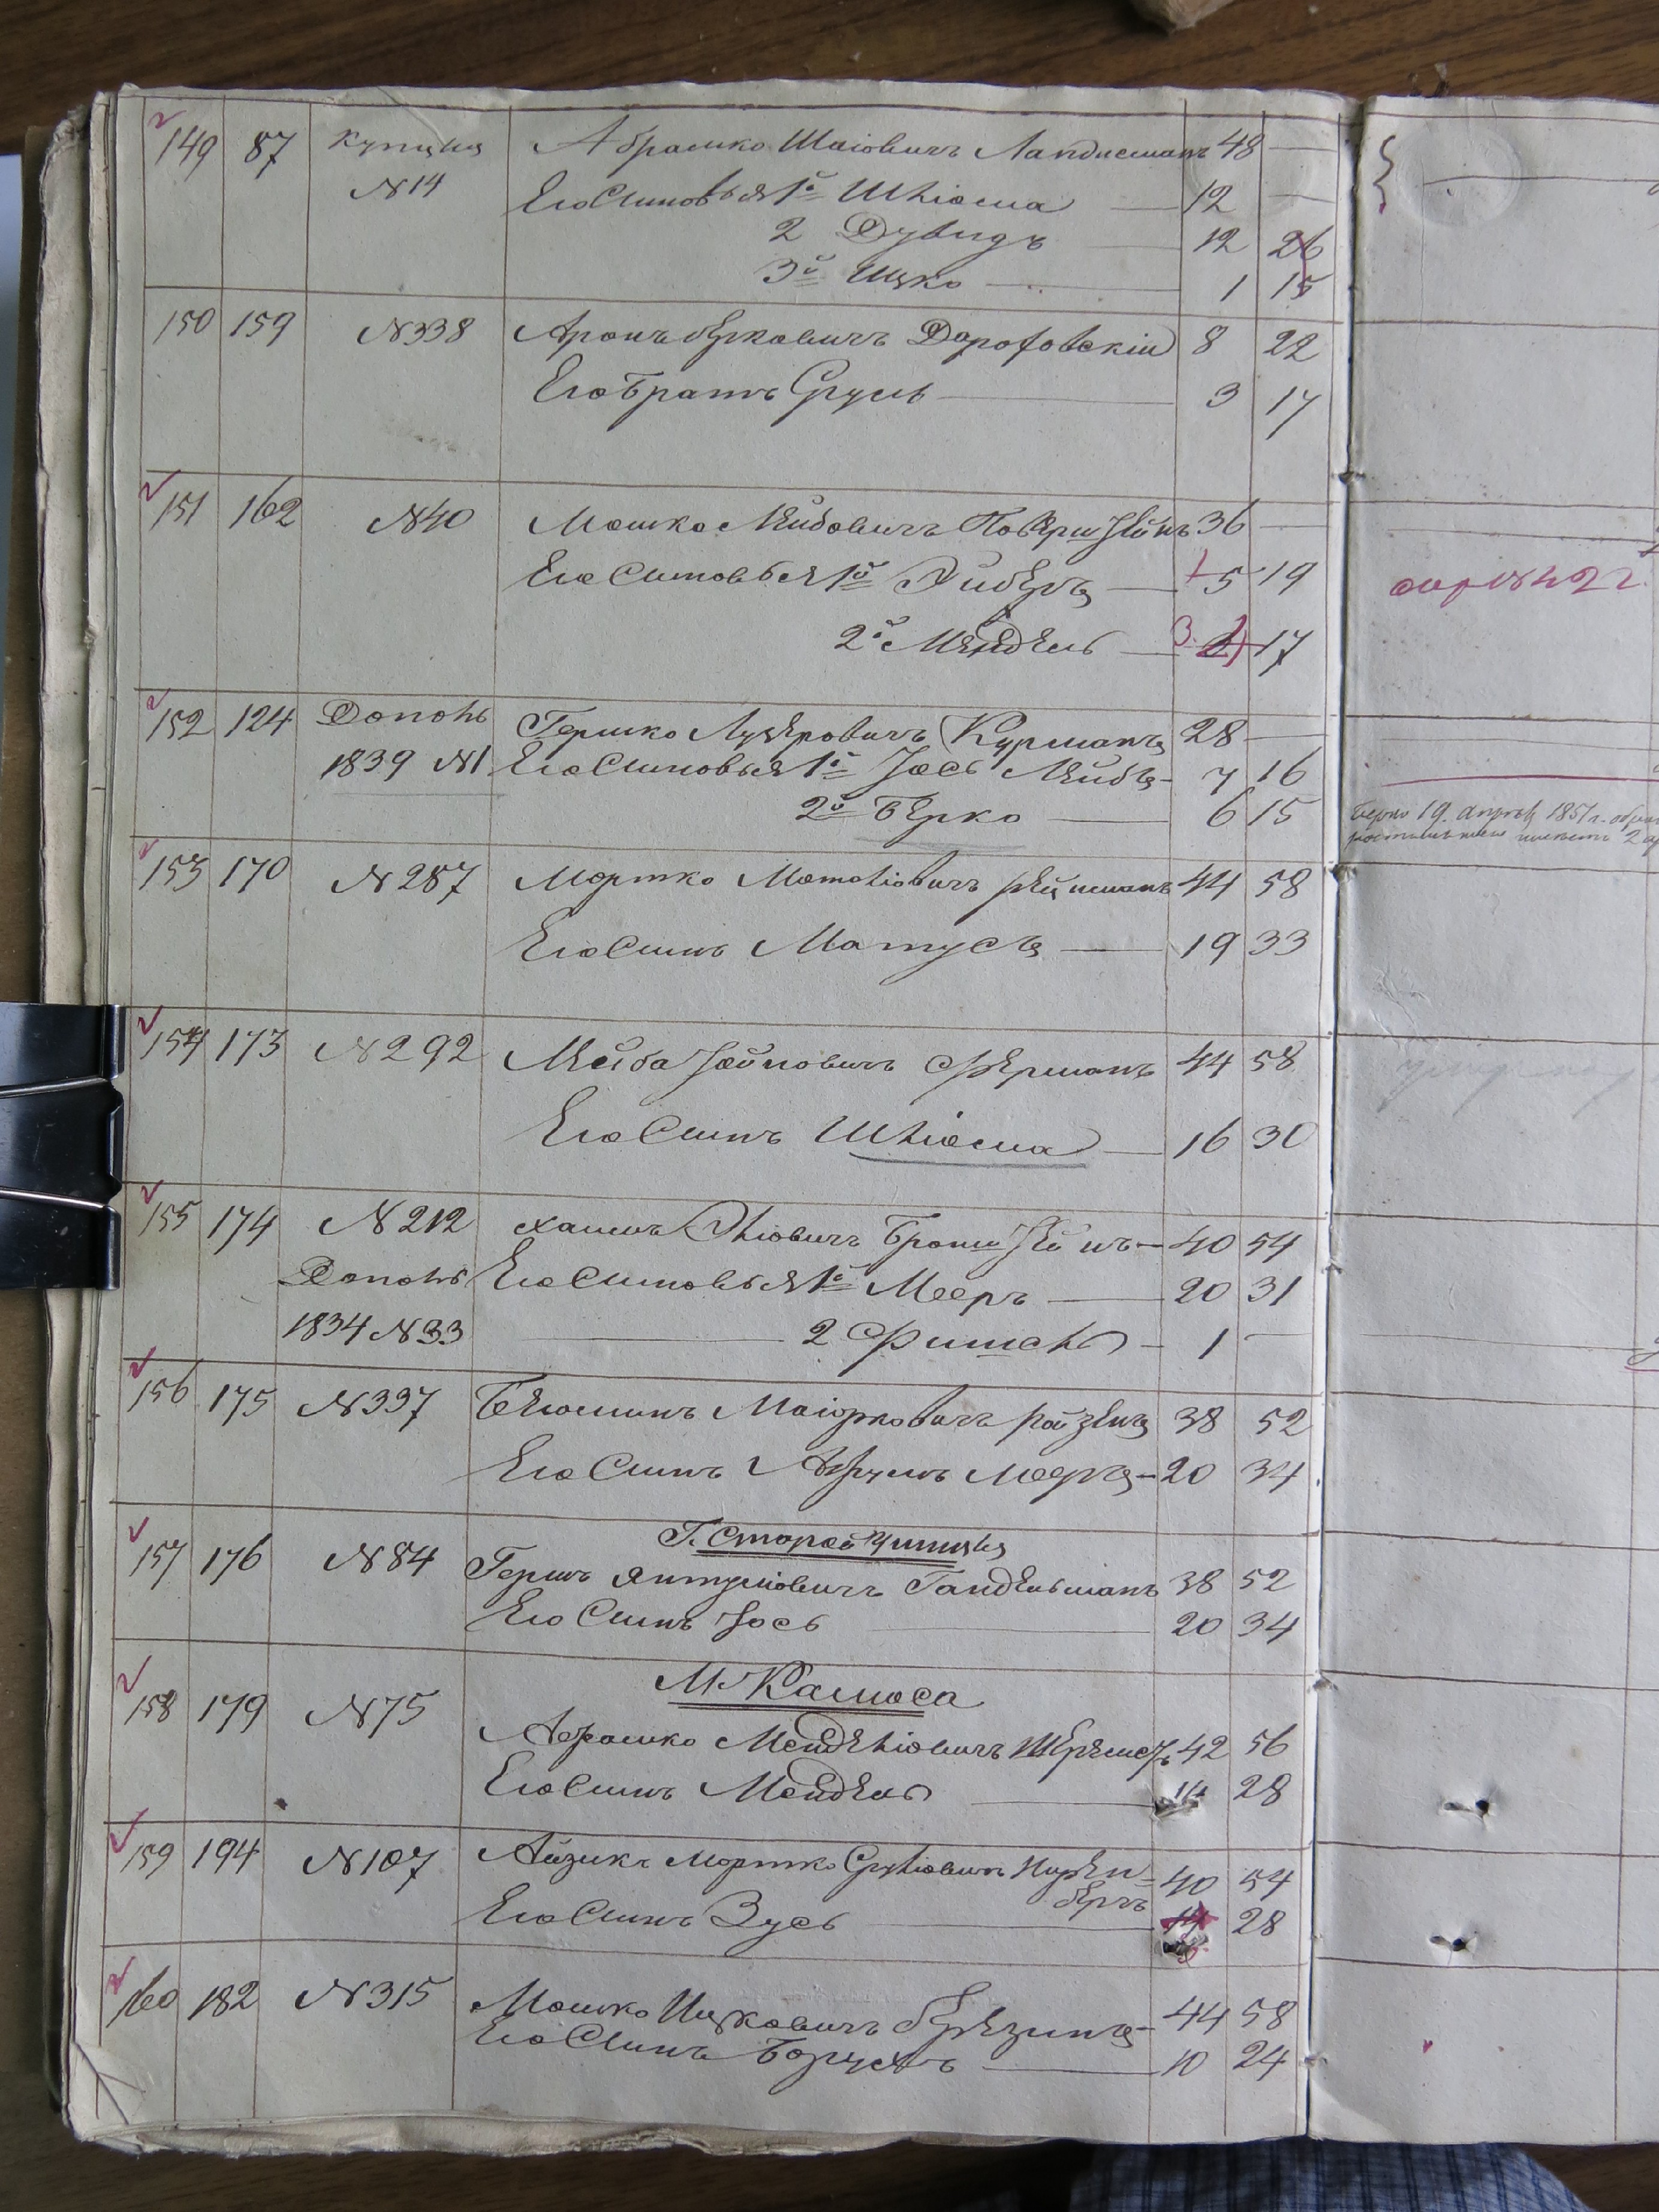 149 87 Купцы Абрамко Шаіовичъ Ландисманъ 48 —
№14 Его Сыновья 1й Шліома — 12 —
2 Дувидъ — 12 26
3й Ицко — 1 15
150 159 №338 Аронъ Берковичъ Дорофовскій 8 22
Его Братъ Сруль — 3 17
151 162 №40 Мошко Лейбовичъ 36 —
Его Сыновья 1й Лейберъ — 5 19
№422
2й Мендель — 3. 2 17
152 124 Дополн Гершко Лузеровичъ Курманъ 28 —
1839 №1 Его Сыновья 1й Іось Лейбъ — 7 16
2й Берко — 6 15
Берко 19. апреля 1851 г.
2
153 170 №287 Мортко Мотеліовичъ Рейцманъ 44 58
Его Сынъ Матусъ — 19 33
154 173 №292 Лейба Іойновичъ Ферманъ 44 58
Его Сынъ Шліома — 16 30
155 174 №212 Хаимъ Эліовичъ Бронштейнъ — 40 54
Дополн Его Сыновья 1й Мееръ — 20 31
1834 №33 — 2 Фишель — 1 —
156 175 №337 Беюминъ Маіорковичъ Ройзенъ 38 52
Его Сынъ Аврумъ Мееръ — 20 34
Г. Старой Ушицы
157 176 №84 Гершъ Янтуліовичъ Гандельманъ 38 52
Его Сынъ Іось — 20 34
М. Калюса
158 179 №75
Абрамко Менделіовичъ 42 56
Его Сынъ Мендель — 14 28
159 194 №107 Айзикъ Мортко Сруліовичъ Ниренбергъ 40 54
Его Сынъ Зусь — 14 28
160 182 №315 Мошко Ицковичъ Березинъ — 44 58
Его Сынъ Борухъ — 10 24